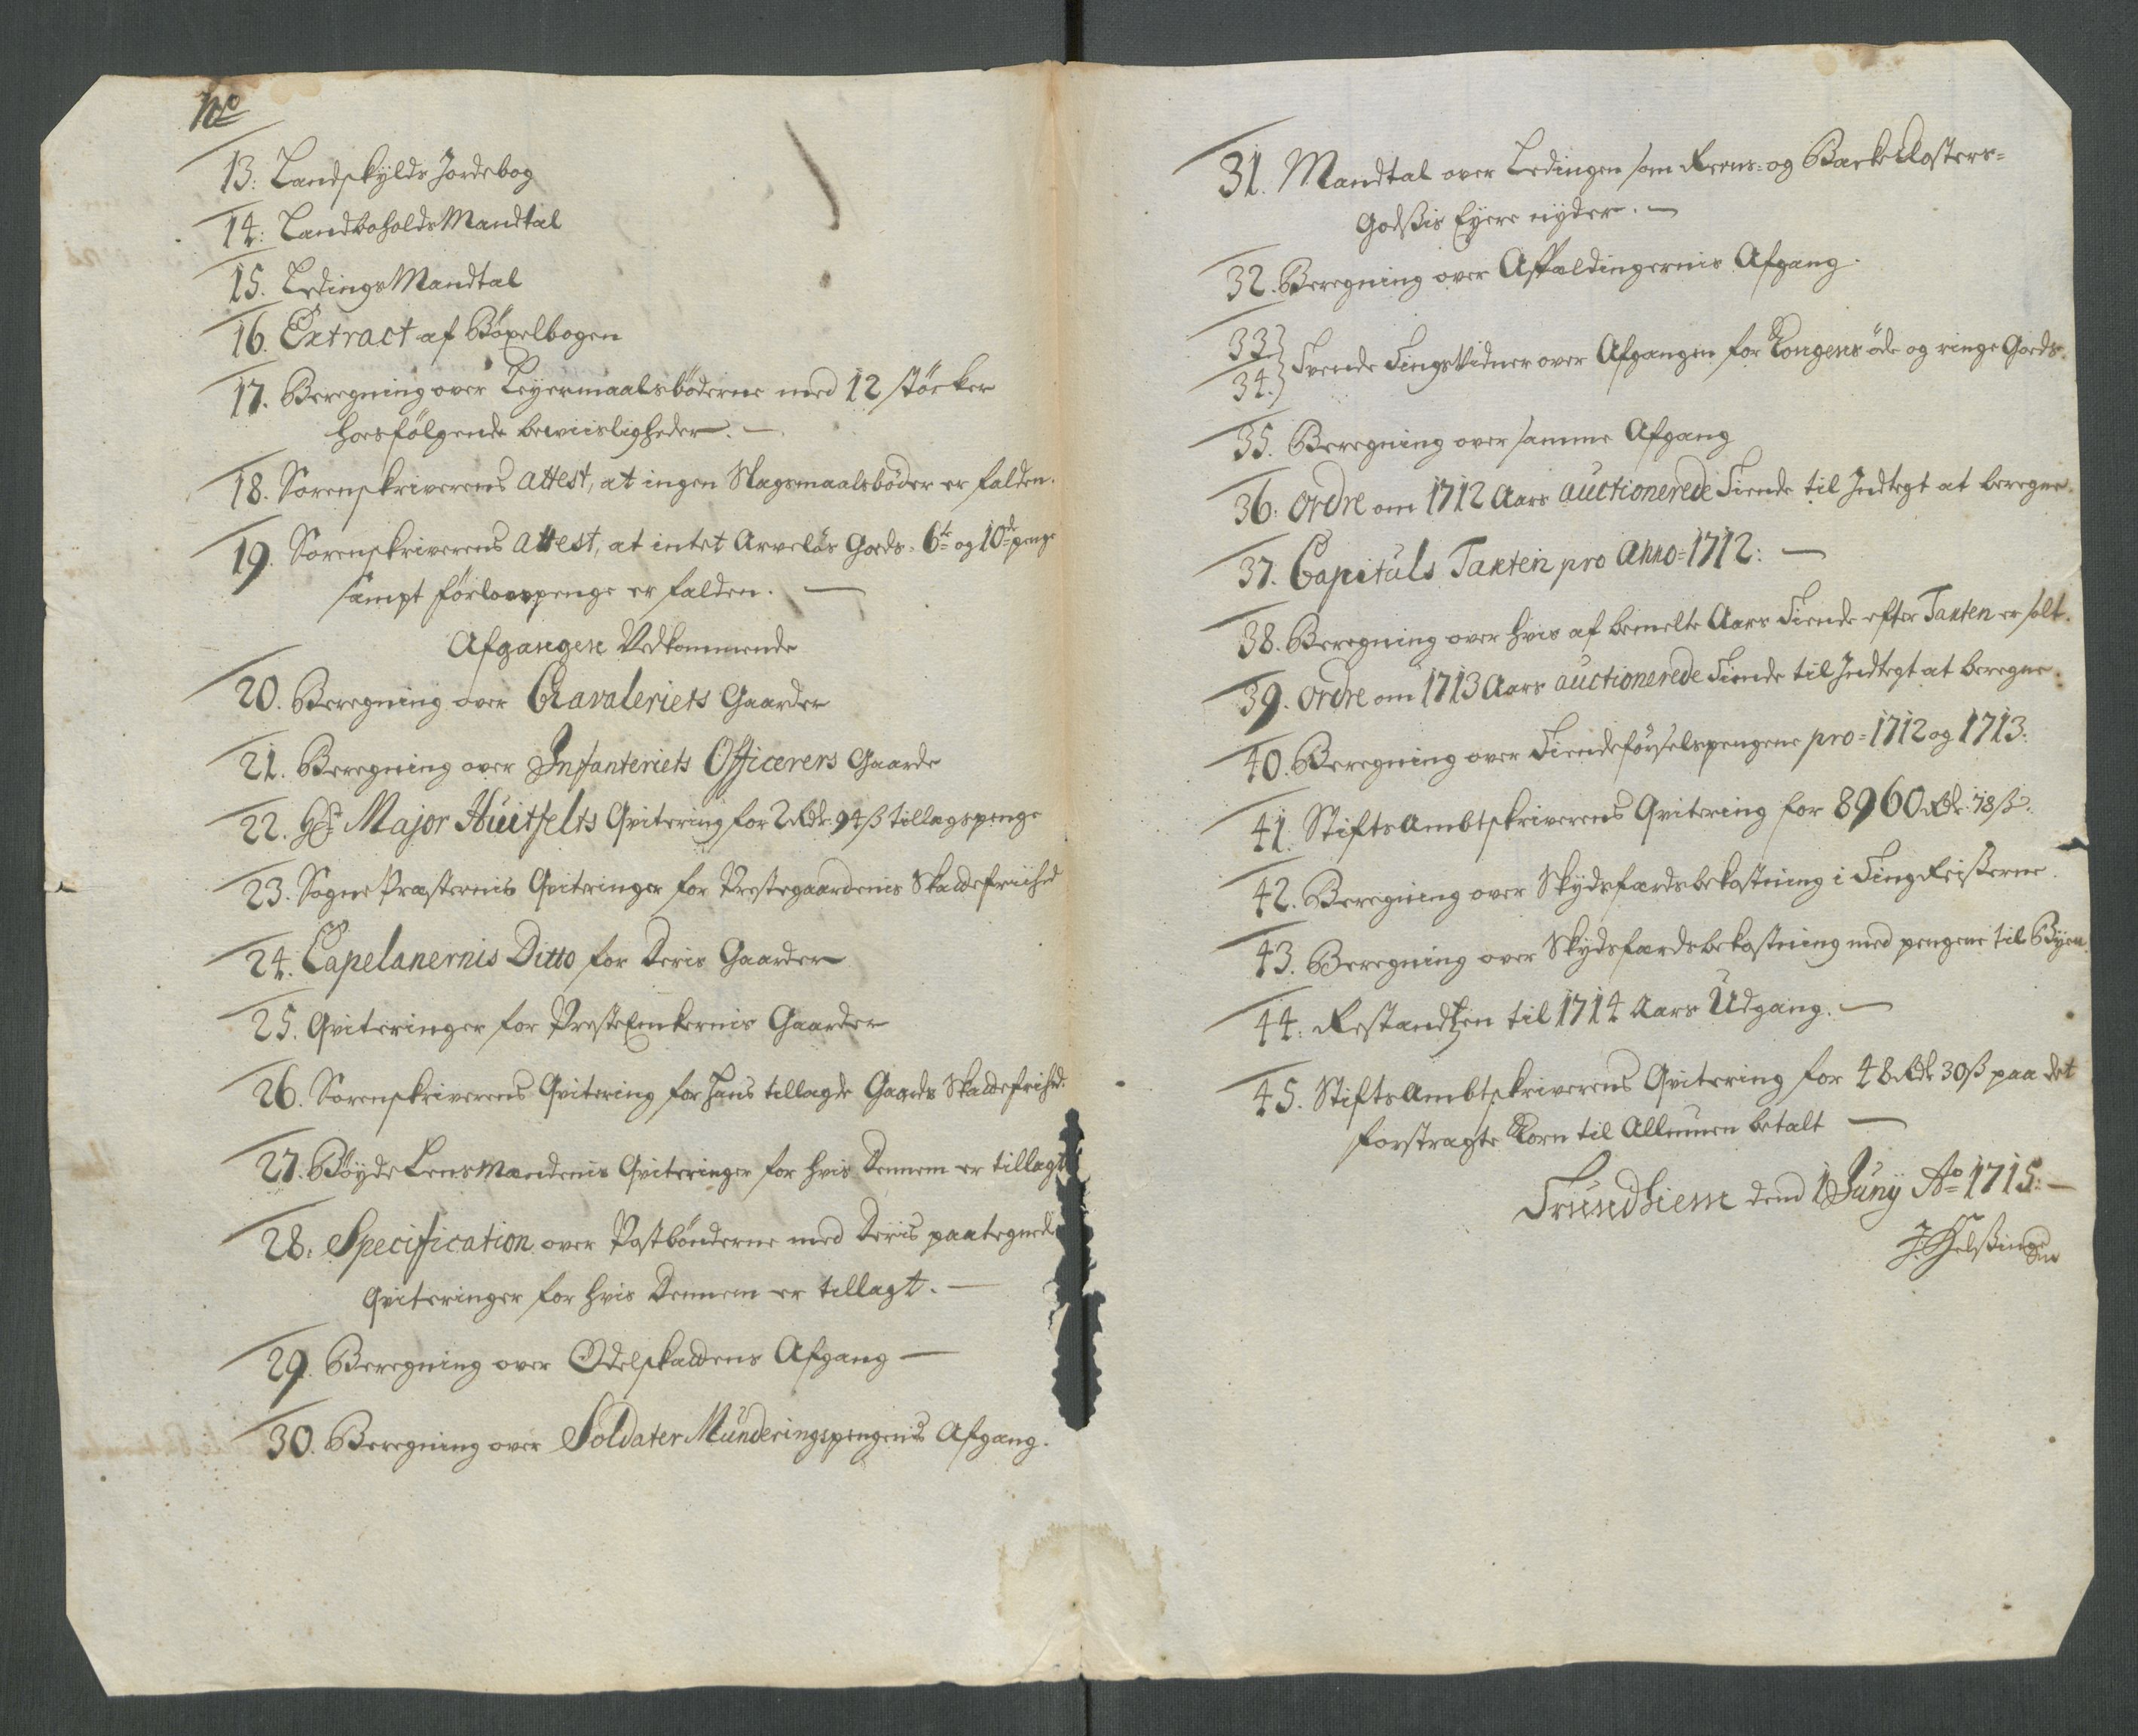 No
13. Landskylds Jordebog
14. Landboholds Mandtal
15. Ledings Mandtal
16. Extract af Böxelbogen
17. Beregning over Leyermaalsböderne med 12 störker
hoesfölgende beviisligheder.
18. Sorenskriverens attest, at ingen Slagsmaalsböder er falden.
19. Sorenskriverens attest, at intet Arvelös Goeds- 6te og 10de penge
sampt förlovspenge er falden.
Afgangen Vedkommende
20. Beregning over Cavaleriets Gaarder
21. Beregning over Infanteriets Officerers Gaarde
22. Hr Major Huitfelts Qvitering for 2 Rdr. 94 ß tillagspenge
23. Sogne Præsternis Qviteringer for Prestegaardenis Skattefriihed
24. Capelanernis Ditto for Deris Gaarder
25. Qviteringer for PresteEnkernis Gaarder
26. Sorenskriverens Qvitering for hans tillagde Gaards Skattefrihed.
27. Böyde Lensmændenis Qviteringer for hvis Dennem er tillagt
28. Specification over Postbönderne med Deris paategnede
Qviteringer for hvis Dennem er tillagt.
29. Beregning over Odelskattens Afgang
30. Beregning over Soldater Munderingspengenis Afgang.
31. Mandtal over Ledingen som Reens- og Backe Closters-
Godsßis Eyere nyder.
32. Beregning over Affældingernis Afgang.
33
34. Tvende Tingsvidner over Afgangen for Kongens öde og ringe Goeds.
35. Beregning over samme Afgang
36. Ordre om 1712 Aars auctionerede Tiende til Indtegt at beregne.
37. Capituls Taxten pro Anno 1712.
38. Beregning over hvis af bemelte Aars Tiende efter Taxten er solt.
39. Ordre om 1713 Aars auctionerede Tiende til Indtegt at beregne.
40. Beregning over Tiendeförselspengene pro 1712 og 1713.
41. Stifts Ambtskriverens Qvitering for 8960 Rdr. 78 ß.
42. Beregning over Skydsfærdsbekostning i Ting Reißerne.
43. Beregning over Skydsfærdsbekostning med pengene til Byen.
44. Restandtzen til 1714 Aars Udgang.
45. Stifts Ambtskriverens Qvitering for 48 Rdr 30 ß paa det
forstragte Korn til Almuen betalt
Trundhiem dend 1 Juny Ao 1715.